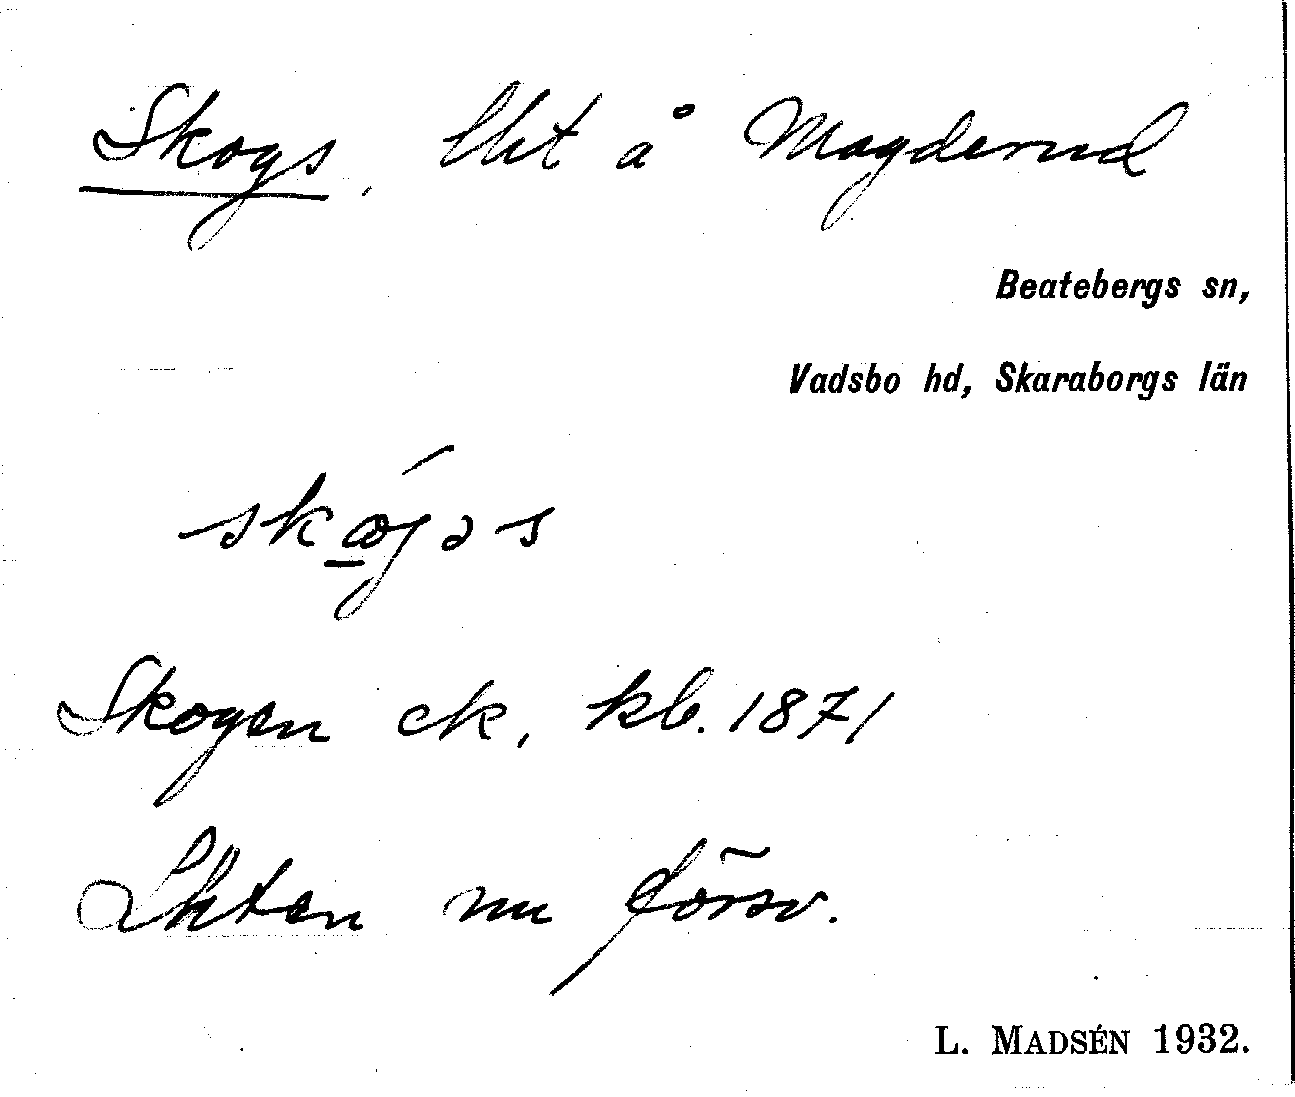 Skogs, lht å Magderud
Beatebergs sn,
Vadsbo hd, Skaraborgs län
Skogen ck, kb. 1871
Lhten nu försv.
L. MADSÉN 1932.